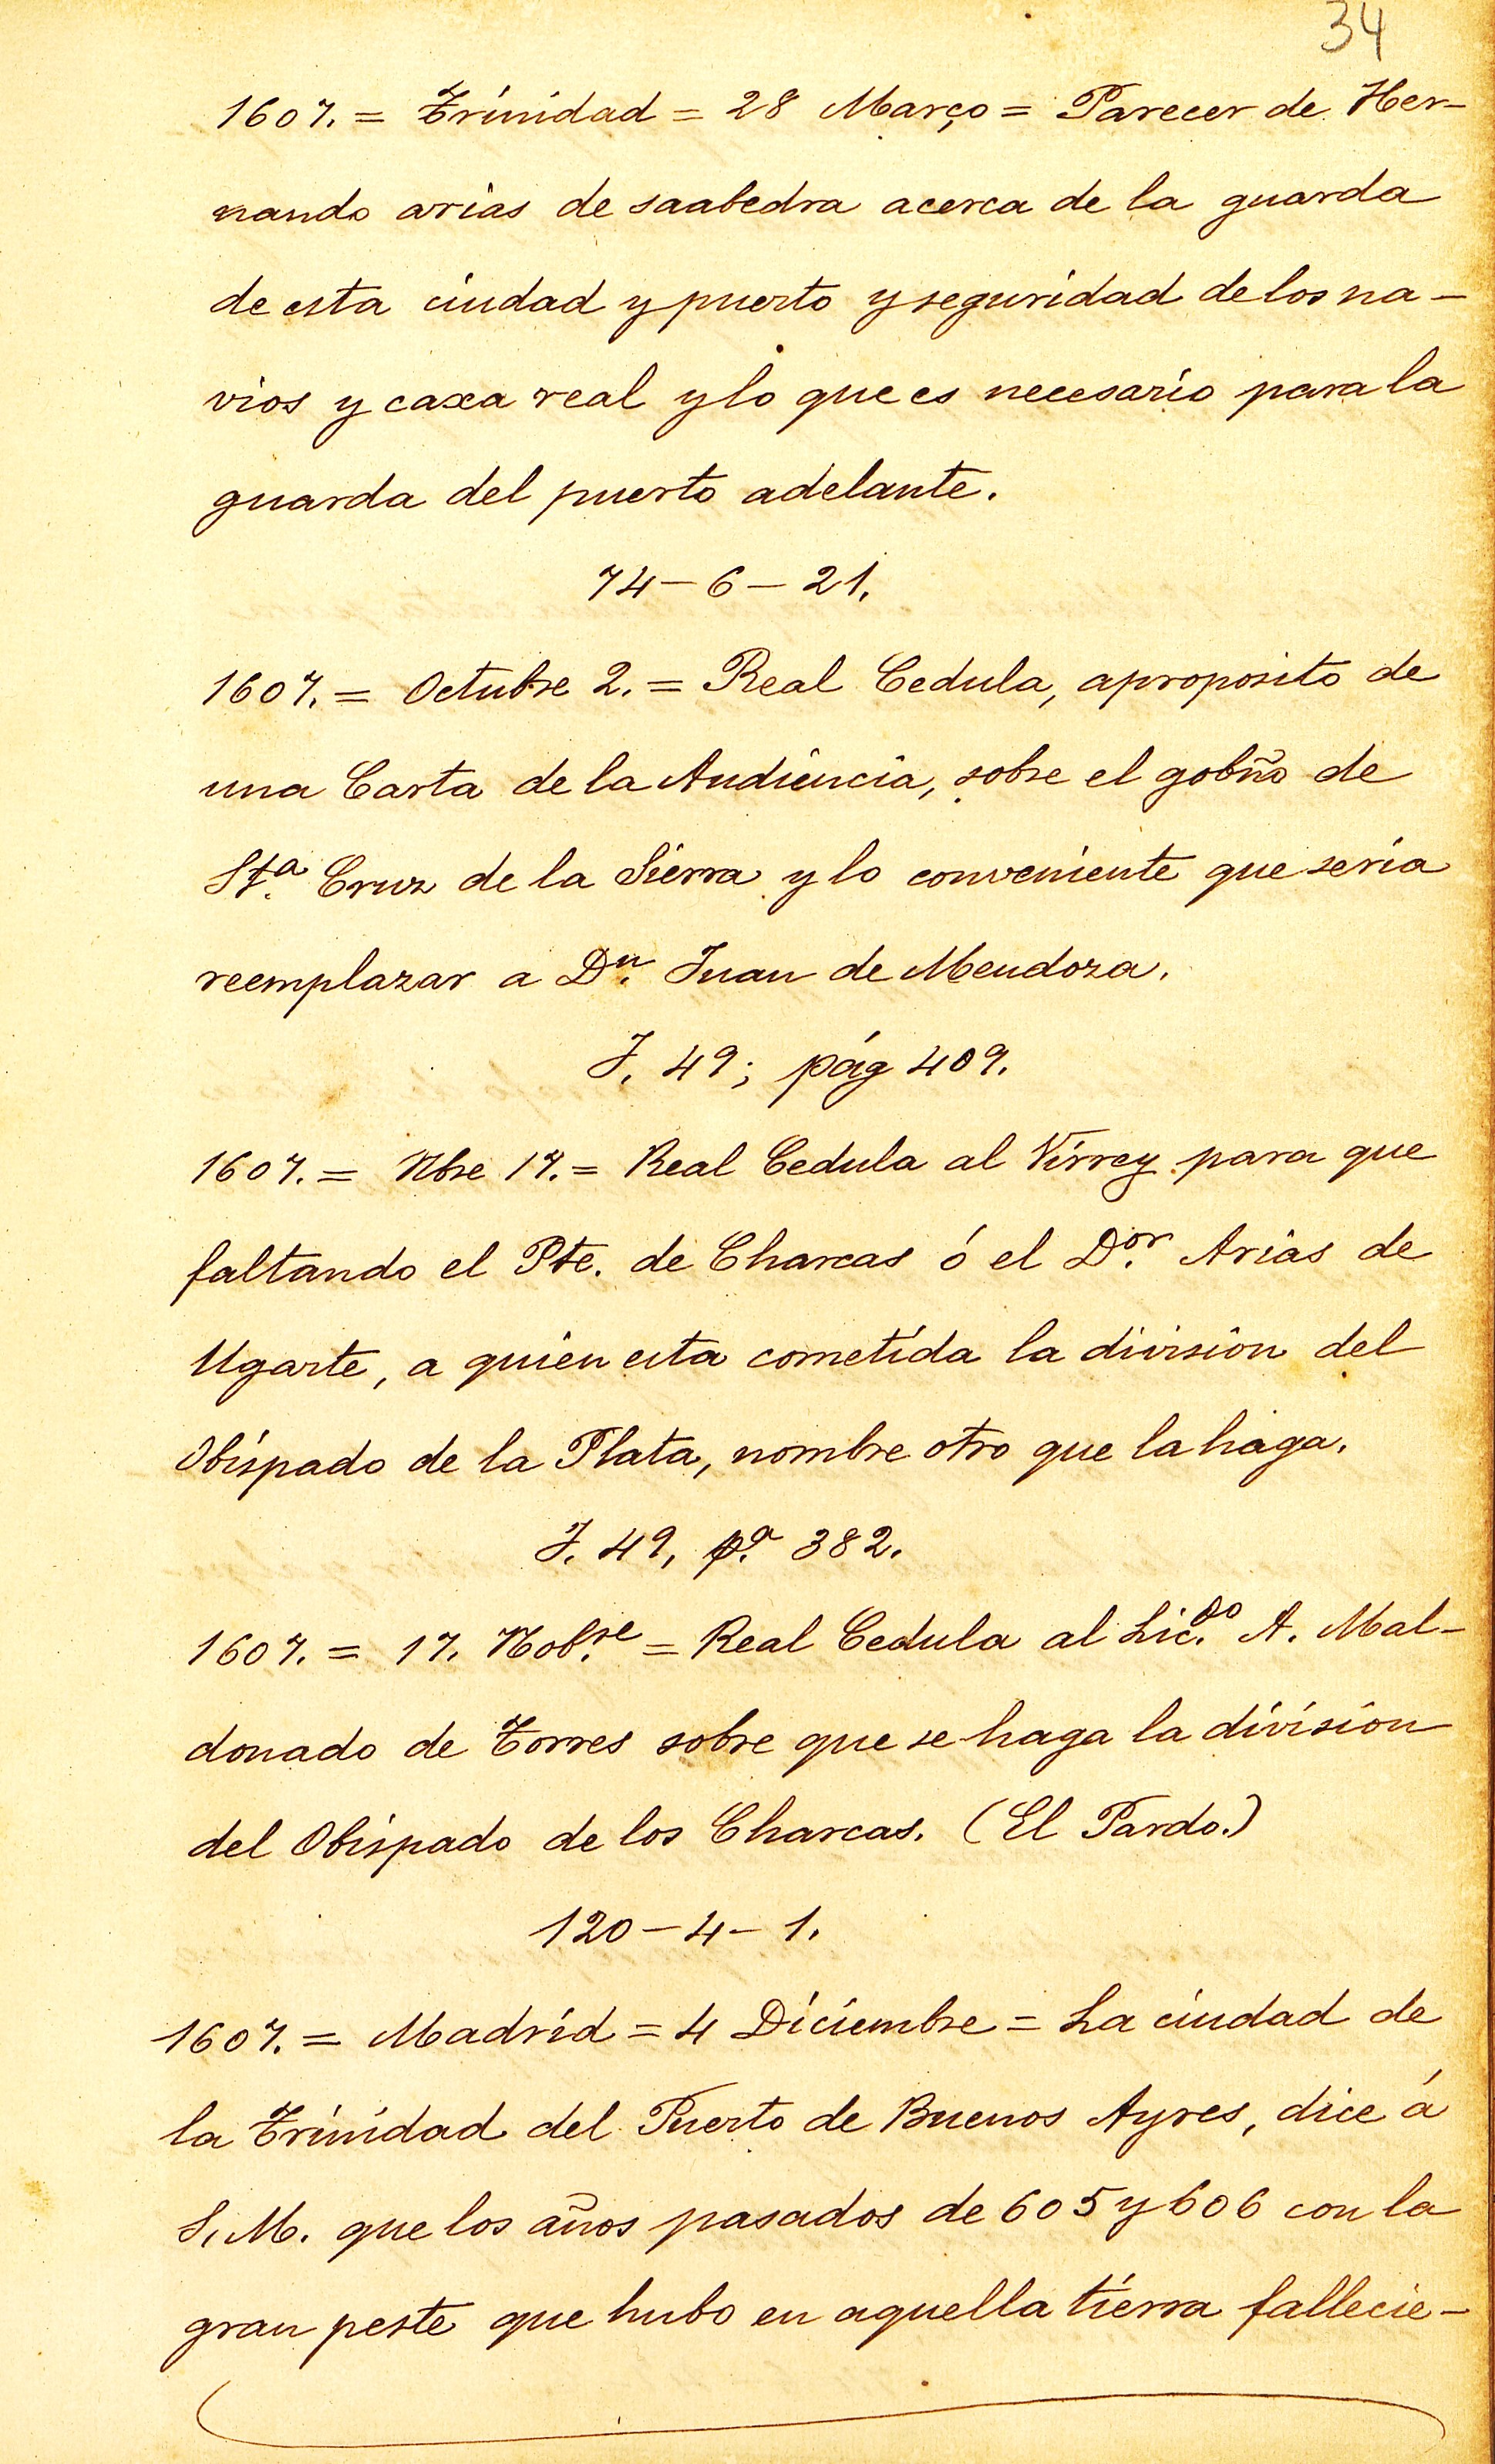 34
1607. = Trinidad = 28 Março = Parecer de Her-
nando arias de saabedra acerca de la guarda
de esta ciudad y puerto y seguridad de los na-
vios y caxa real y lo que es necesario para la
guarda del puerto adelante.
74 - 6 - 21.
1607. = Octubre 2. = Real Cedula, aproposito de
una Carta de la Audiencia, sobre el gobño de
Sta. Cruz de la Sierra y lo conveniente que seria
reemplazar a Dn. Juan de Mendoza.
J. 49; pág 409.
1607. = Nbre 17. = Real Cedula al Virrey para que
faltando el Pte. de Charcas ó el Dor. Arias de
Ugarte, a quien esta cometida la division del
Obispado de la Plata, nombre otro que la haga.
J. 49, pa. 382.
1607. = 17. Nob.re = Real Cedula al Lic.do A. Mal-
donado de Torres sobre que se haga la division
del Obispado de los Charcas. (El Pardo.)
120 - 4 - 1.
1607. = Madrid = 4 Diciembre = La ciudad de
la Trinidad del Puerto de Buenos Ayres, dice á
S. M. que los años pasados de 605 y 606 con la
gran peste que hubo en aquella tierra fallecie-